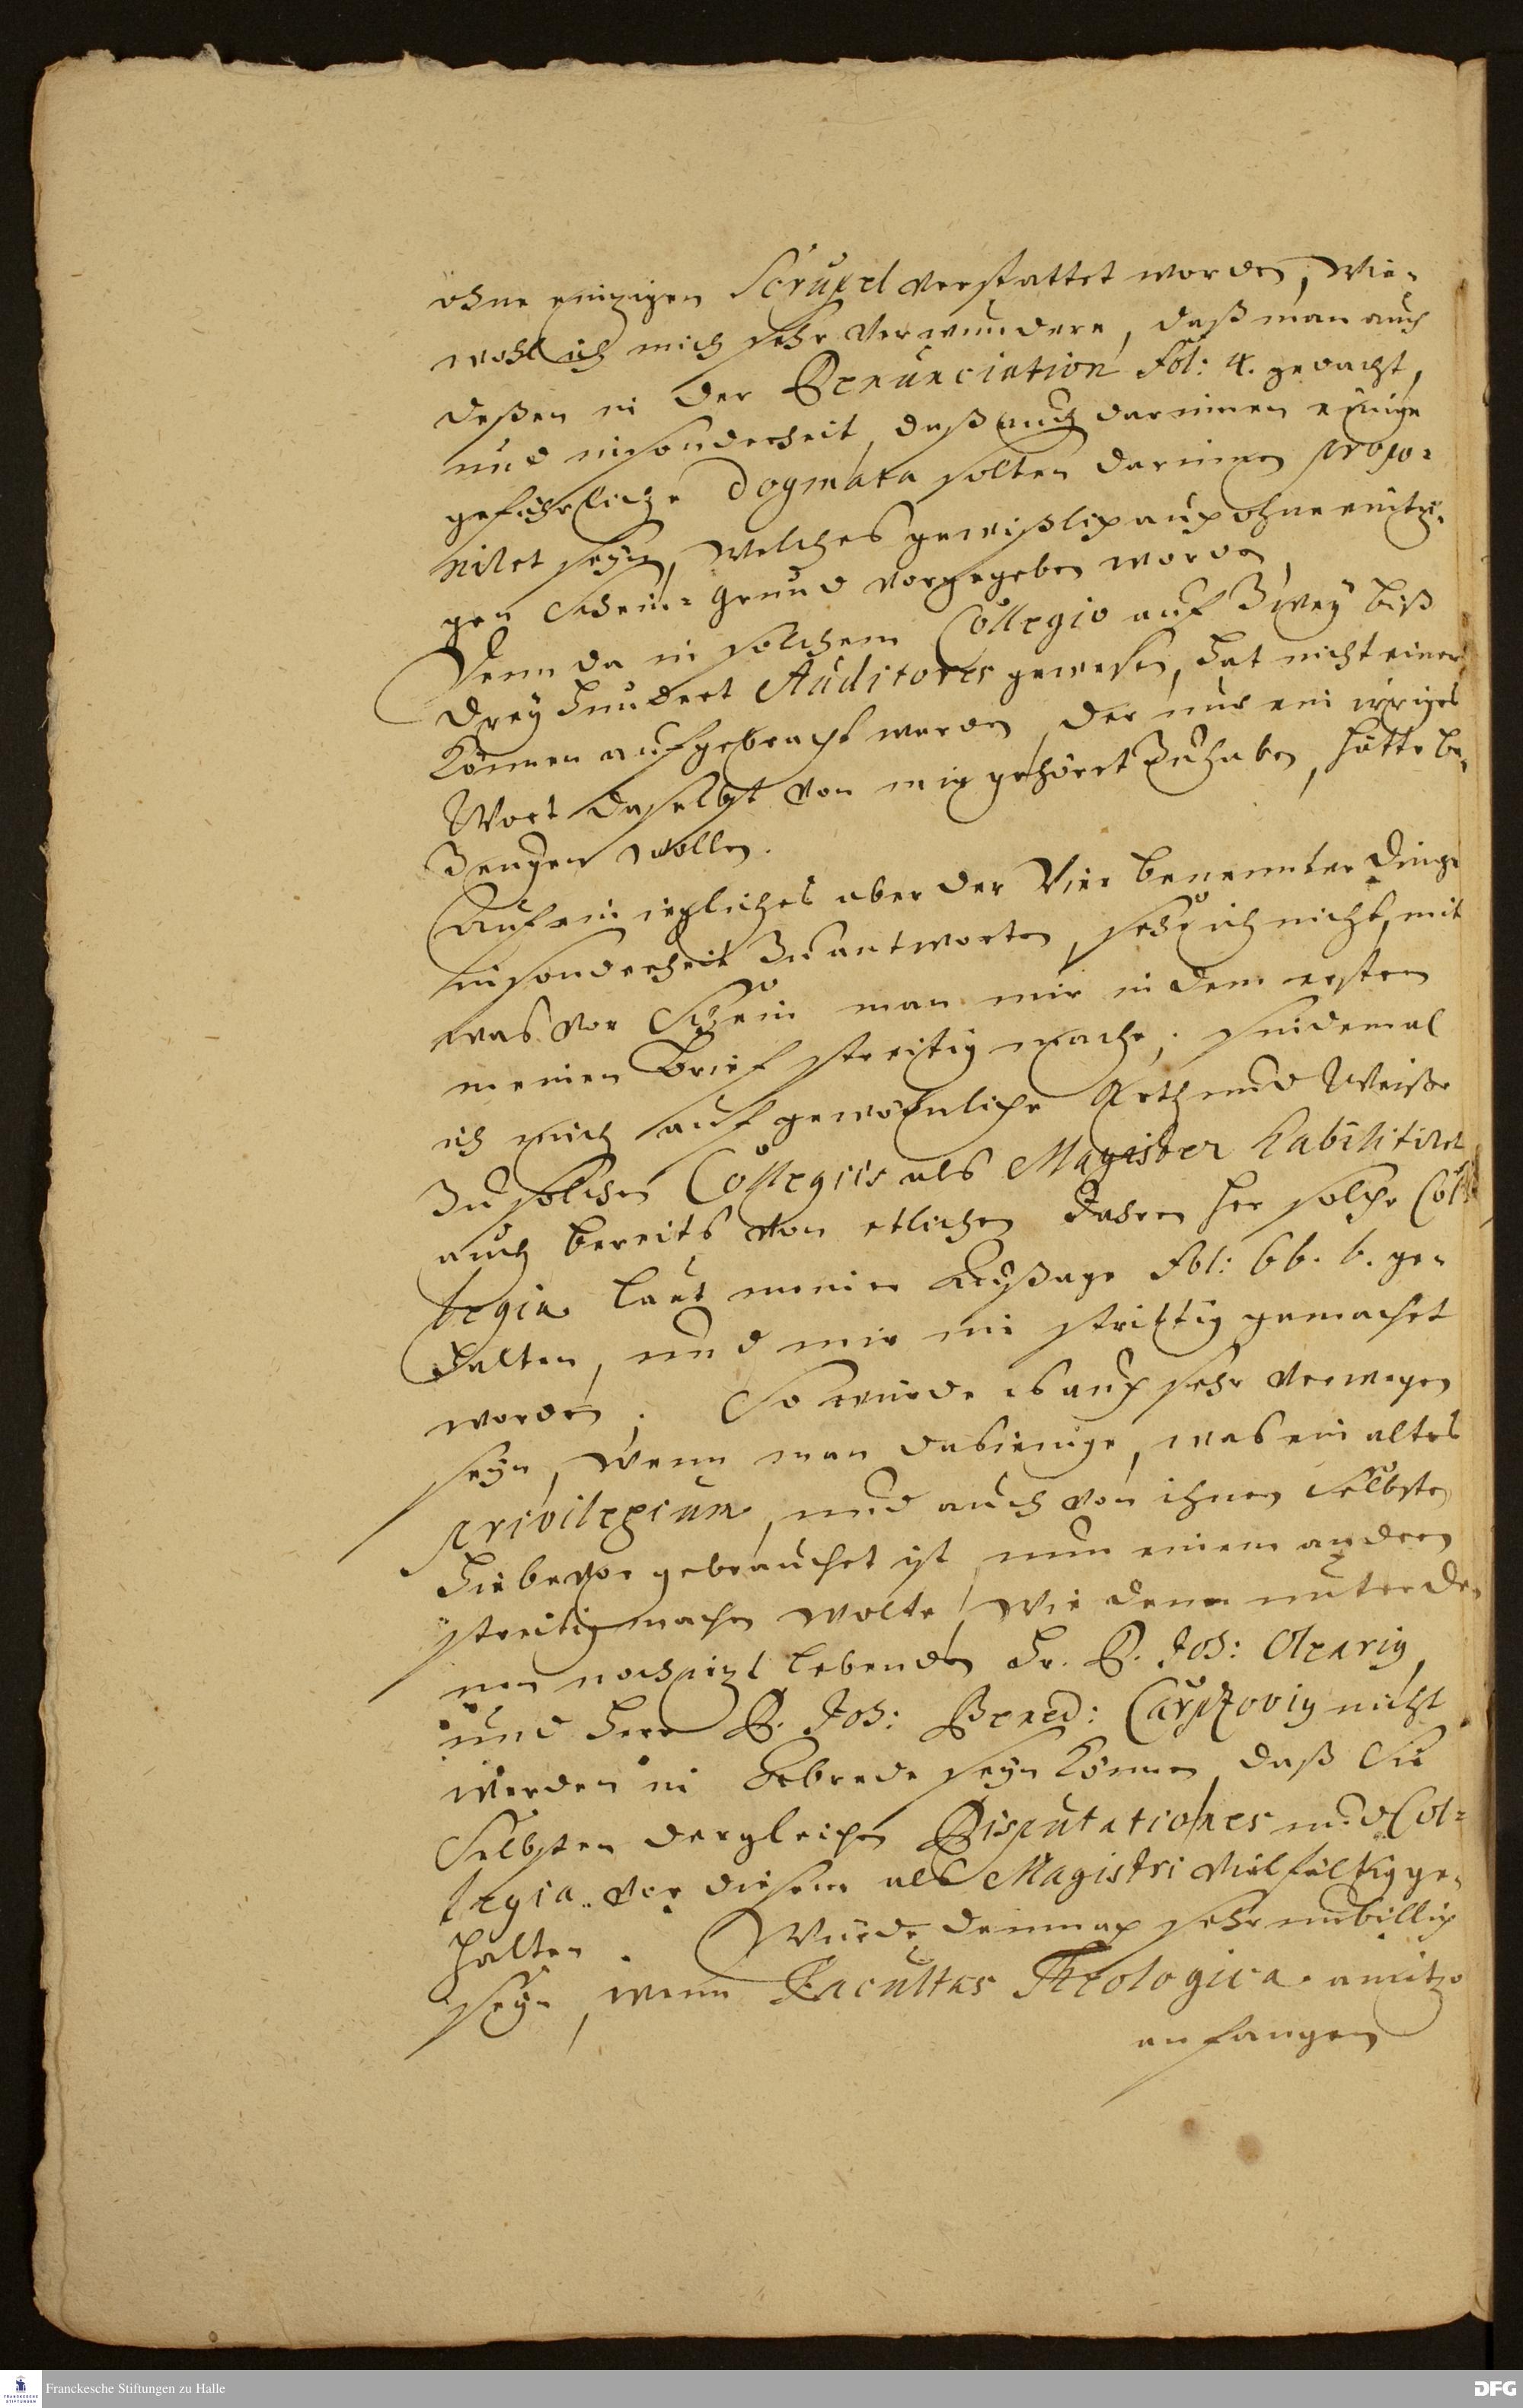 ohne einzigen Scrupel verstattet worden, Wie-
wohl ich mich sehr verwundere, daß man auch
deßen in der Denunciation Fol: 4. gedacht,
und insonderheit, daß auch darinnen einige
gefährliche Dogmata solten darinnen propo-
niret seyn, welches gewißlich auch ohne eintzi-
gen Schein-Grund vorgegeben worden,
Denn da in solchem Collegio auf Zwey biß
drey hundert Auditores gewesen, hat nicht einer
können aufgebracht werden, der nur ein irriges
Wort daselbst von mir gehöret zuhaben, hätte be-
zeugen wollen.
Auf ein iegliches aber der Vier benennter Dinge
insonderheit zu antworten, sehe ich nicht, mit
was vor Schein man mir in dem ersten
meinen Brief streitig mache; sindemal
ich mich auf gewöhnliche Arth und Weiße
zu solchen Collegiis als Magister habilitiret
auch bereits von etlichen Jahren her solche Col-
legia laut meiner Außage Fol: 66. b. ge-
halten, und mir nie strittig gemachet
worden. So würde es auch sehr verwegen
seyn, wenn man dasienige, was ein altes
privilegium, und auch von ihnen selbsten
hiebevor gebrauchet ist, nun einem andern
streitig machen wolte, Wie denn unter de-
nen noch ietzt lebenden Hr. D. Joh: Olearius,
und Herr D. Joh: Bened: Carpzovius nicht
werden in Abrede seyn können, daß Sie
Selbsten dergleichen Disputationes und Col-
legia vor diesem als Magistri vielfältig ge-
halten. Würde demnach sehr unbillig
seyn, wenn Facultas Theologica anitzo
anfangen
Franckesche Stiftungen zu Halle
FRANCKESCHE STIFTUNGEN
DFG